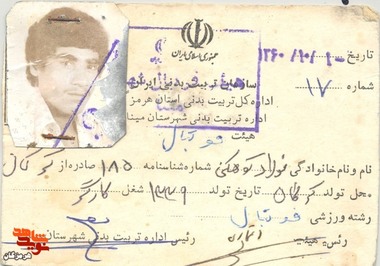 جمهوری اسلامی ایران
تاریخ ۱۳۶۰/۱۰/۱
شماره ۱۷
سازمان تربیت بدنی ایران
اداره کل تربیت بدنی استان هرمز
اداره تربیت بدنی شهرستان مینا
هیئت فوتبال
نام و نام خانوادگی فولاد کوهکن شماره شناسنامه ۱۸۵ صادره از
محل تولد تاریخ تولد ۱۳۳۹ شغل کارگر
رشته ورزشی فوتبال
رئیس هیئت رئیس اداره تربیت بدنی شهرستان
نوید شاهد
هرمزگان